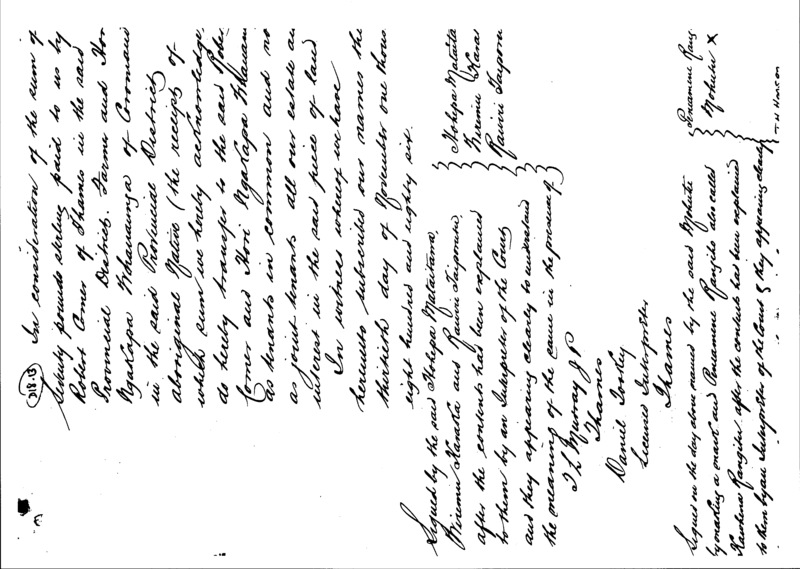 £18.15
In consideration of the sum of
Seventy pounds sterling paid to us by
Robert Corner of Thames in the said
Provincial District Farmer and Hori
Ngakapa Whanaunga of Coromand
in the said Provincial District
aboriginal Native (the receipt of
which sum we hereby acknowledge
do hereby transfer to the said Robe
Corner and Hori Ngakapa Whanau
as tenants in common and no
as joint tenants all our estate an
interest in the said piece of land
In witness whereof we have
hereunto subscribed our names the
thirtieth day of November one thous
eight hundred and eighty six.
Signed by the said Hohepa Mataitaua,
Wiremu Kanaka and Rawiri Taiporu
after the contents had been explained
to them by an Interpreter of the Court
and they appearing clearly to understand
the meaning of the same in the presence of
Hohepa Mataita
Wiremu Kana
Rawiri Taiporu
T L Murray J P
Thames
Daniel Tookey
Licensed Interpreter
Thames
Signed on the day above named by the said
by making a mark and Penamene Rangihe also called
Rangihe after the contents had been explained
to them by an Interpreter of the Court & they appearing clearly
Penamene Rang
X
T. H. Hanson